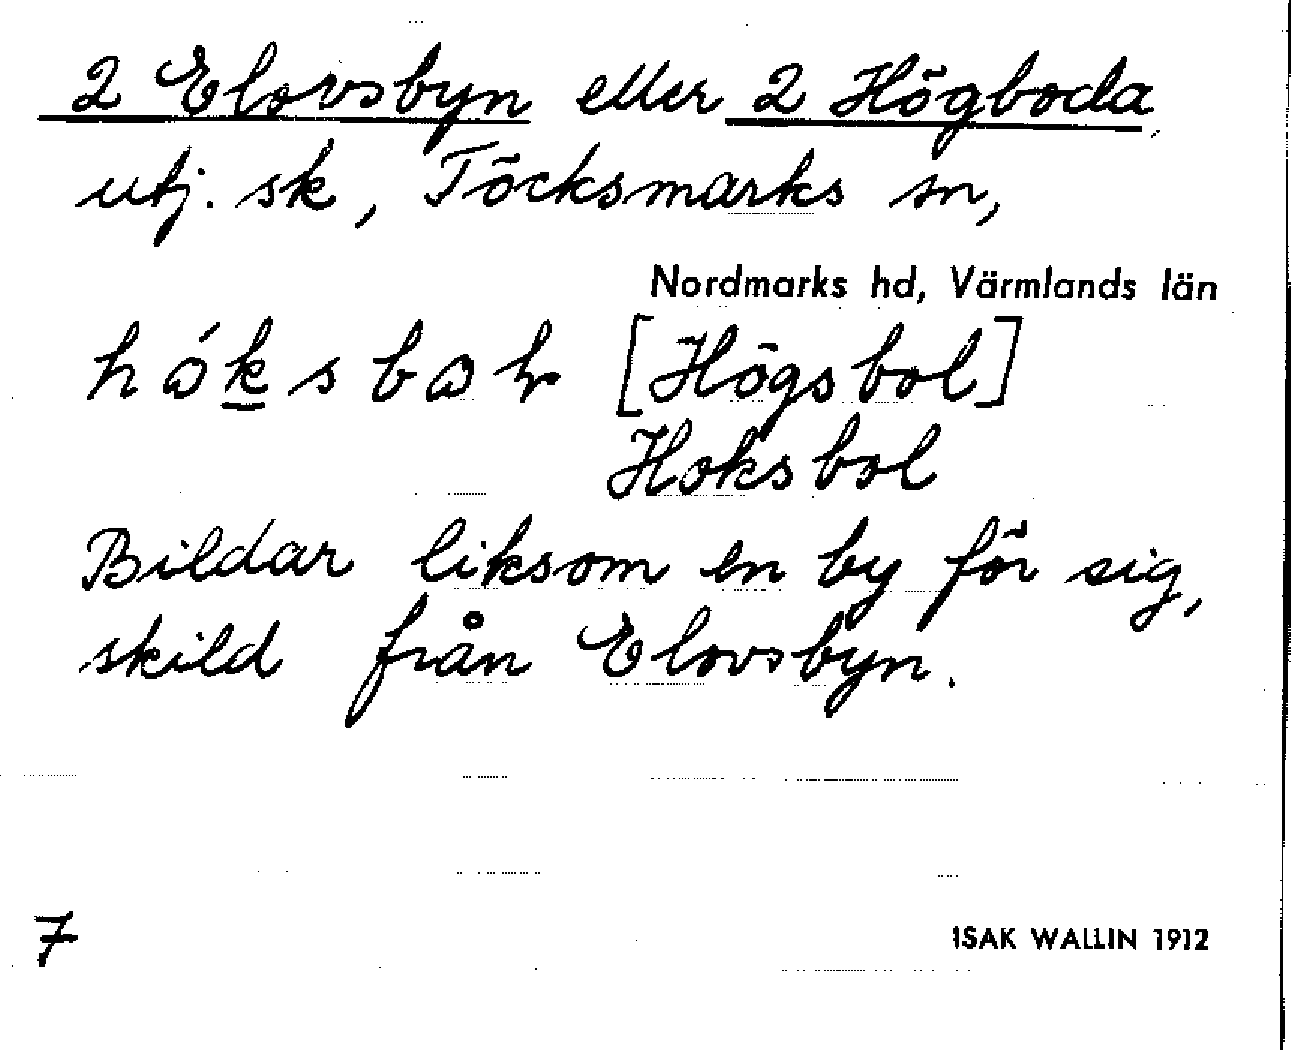 2 Elovsbyn eller 2 Högboda
utj. sk, Töcksmarks sn,
Nordmarks hd, Värmlands län
[Högsbol]
Hoksbol
Bildar liksom en by för sig,
skild från Elovsbyn.
7
ISAK WALLIN 1912